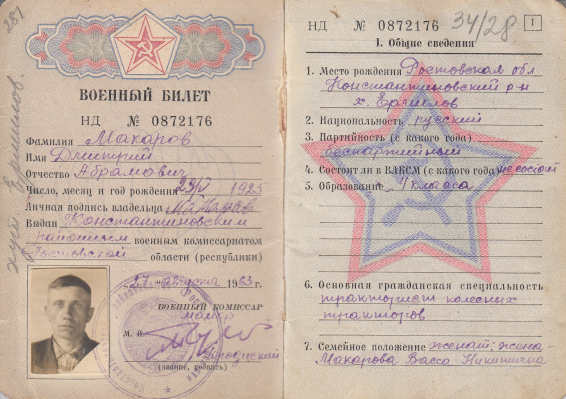 287
хут Ермилов.
ВОЕННЫЙ БИЛЕТ
НД № 0872176
Фамилия Макаров
Имя Дмитрий
Отчество Абрамович
Число, месяц и год рождения 1925
Личная подпись владельца
Выдан Константиновским
районным военным комиссариатом
Ростовской области (республики)
"27" августа 1963 г.
ВОЕННЫЙ КОМИССАР
майор
М. П.
(звание, подпись)
НД № 0872176 34/28 1
I. Общие сведения
1. Место рождения Ростовская обл
Константиновский р-н
х. Ермилов
2. Национальность русский
3. Партийность (с какого года)
беспартийный
4. Состоит ли в ВЛКСМ (с какого года) не состоит
5. Образование 4 класса
6. Основная гражданская специальность
тракторист колесных
тракторов
7. Семейное положение женат: жена-
Макарова Васса Никитична